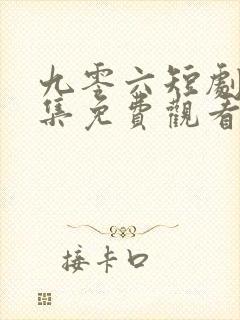 九零六短劇
集免費觀看
接卡口